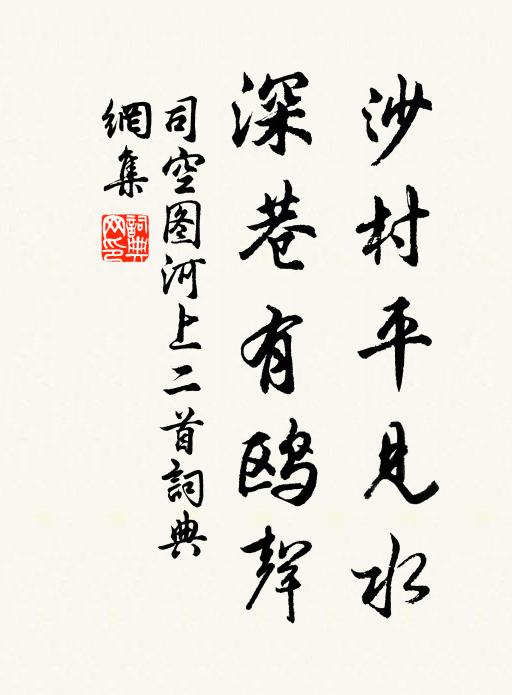 沙村平見水
深巷有鷗聲
司空图河上二首詞典
網集
詞典
网印